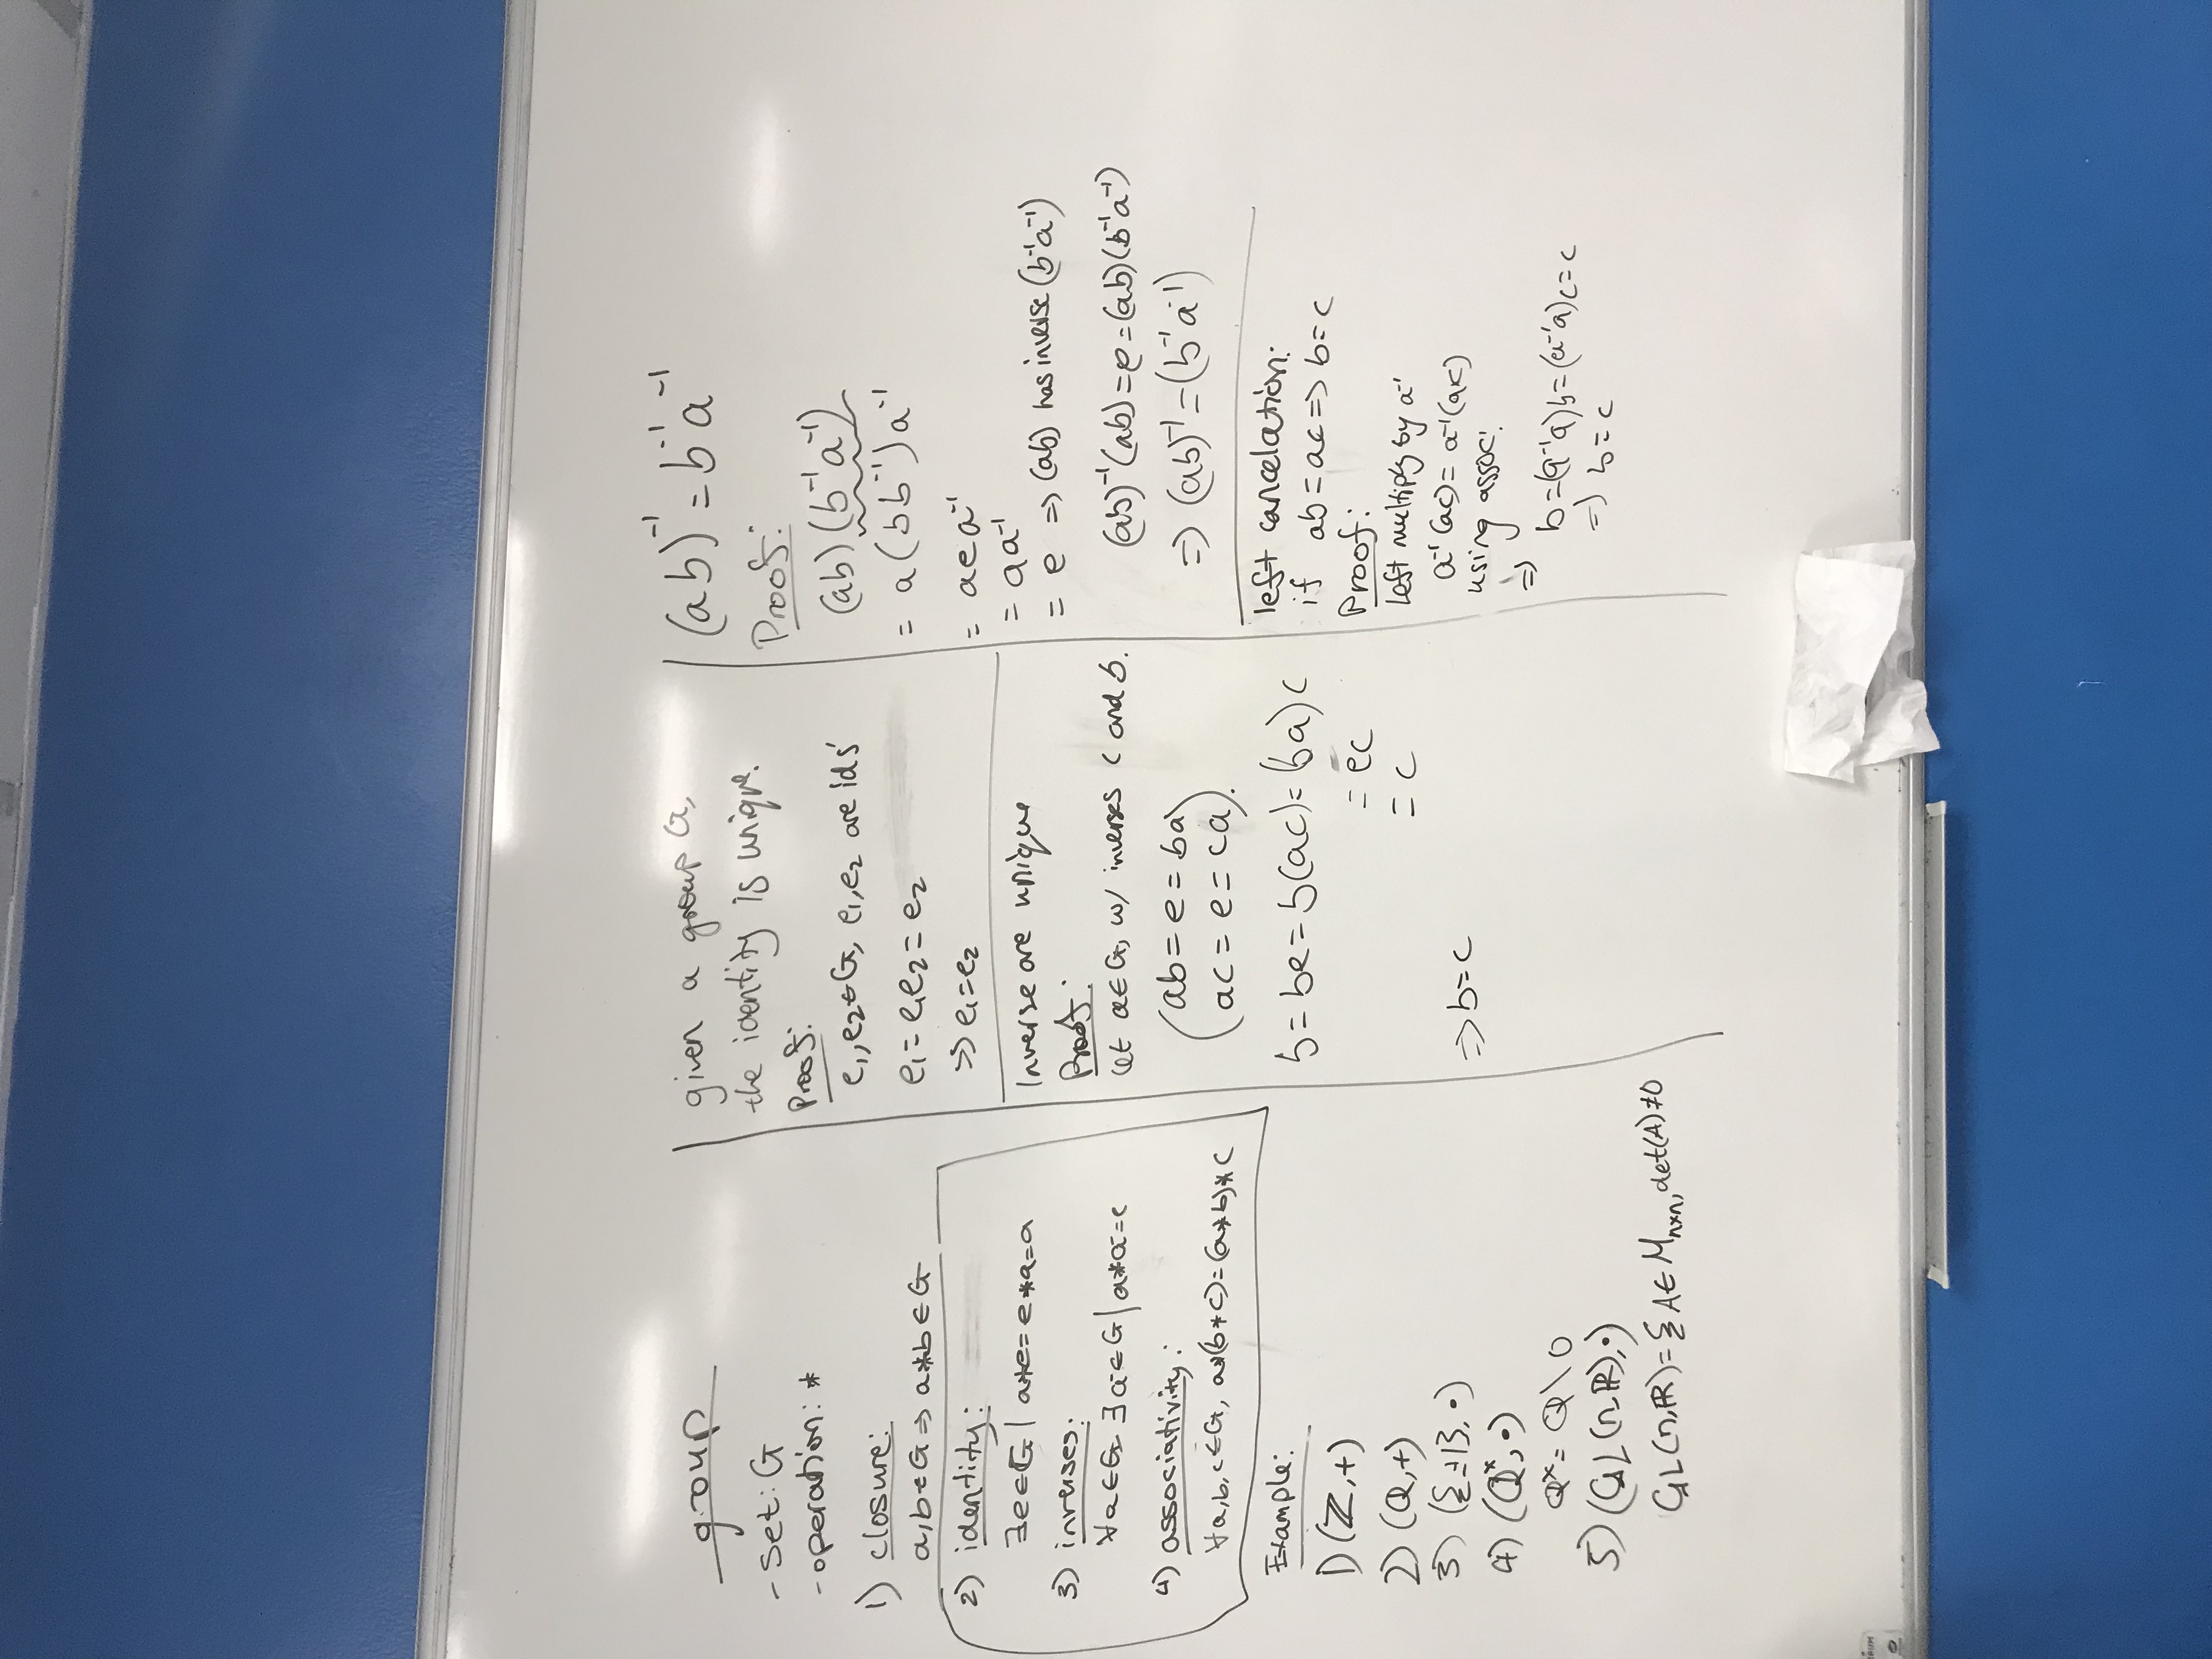 group
- Set: G
- operation: *
1) closure:
a,b∈G ⇒ a*b∈G
2) identity:
∃e∈G | a*e=e*a=a
3) inverses:
∀a∈G, ∃ā∈G | a*ā=e
4) associativity:
∀a,b,c∈G, a*(b*c)=(a*b)*c
Example:
1) (ℤ,+)
2) (ℚ,+)
3) ({±1},•)
4) (ℚˣ,•)
ℚˣ=ℚ\0
5) (GL(n,ℝ),•)
GL(n,ℝ)={A∈Mₙₓₙ, det(A)≠0
given a group G,
the identity is unique.
Proof:
e₁,e₂∈G, e₁,e₂ are ids'
e₁=e₁e₂=e₂
⇒ e₁=e₂
Inverse are unique
Proof:
let a∈G, w/ inverses c and b.
(ab=e=ba
ac=e=ca).
b=be=b(ac)=(ba)c
=ec
=c
⇒ b=c
(ab)⁻¹=b⁻¹a⁻¹
Proof:
(ab)(b⁻¹a⁻¹)
=a(bb⁻¹)a⁻¹
=aea⁻¹
=aa⁻¹
=e ⇒ (ab) has inverse (b⁻¹a⁻¹)
(ab)⁻¹(ab)=e=(ab)(b⁻¹a⁻¹)
⇒ (ab)⁻¹=(b⁻¹a⁻¹)
left cancelation:
if ab=ac ⇒ b=c
Proof:
Left multiply by a⁻¹
a⁻¹(ac)=a⁻¹(ac)
using assoc:
⇒
b=(a⁻¹a)b=(a⁻¹a)c=c
⇒ b=c